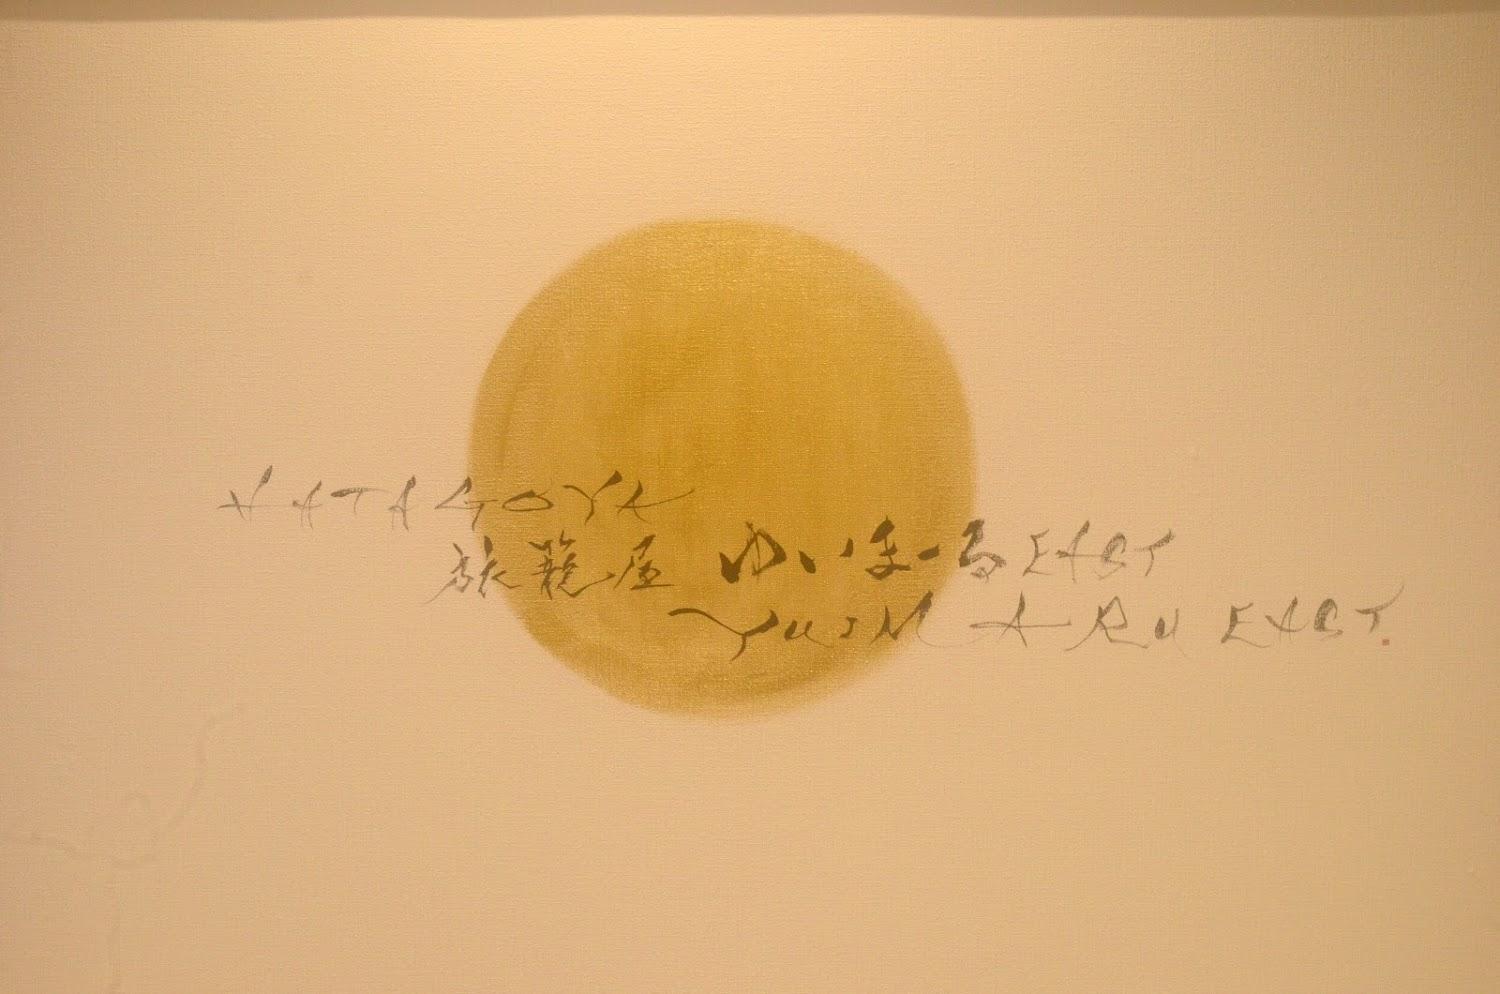 HATAGOYA
旅籠屋 ゆいまーる EAST
YUIMARU EAST.